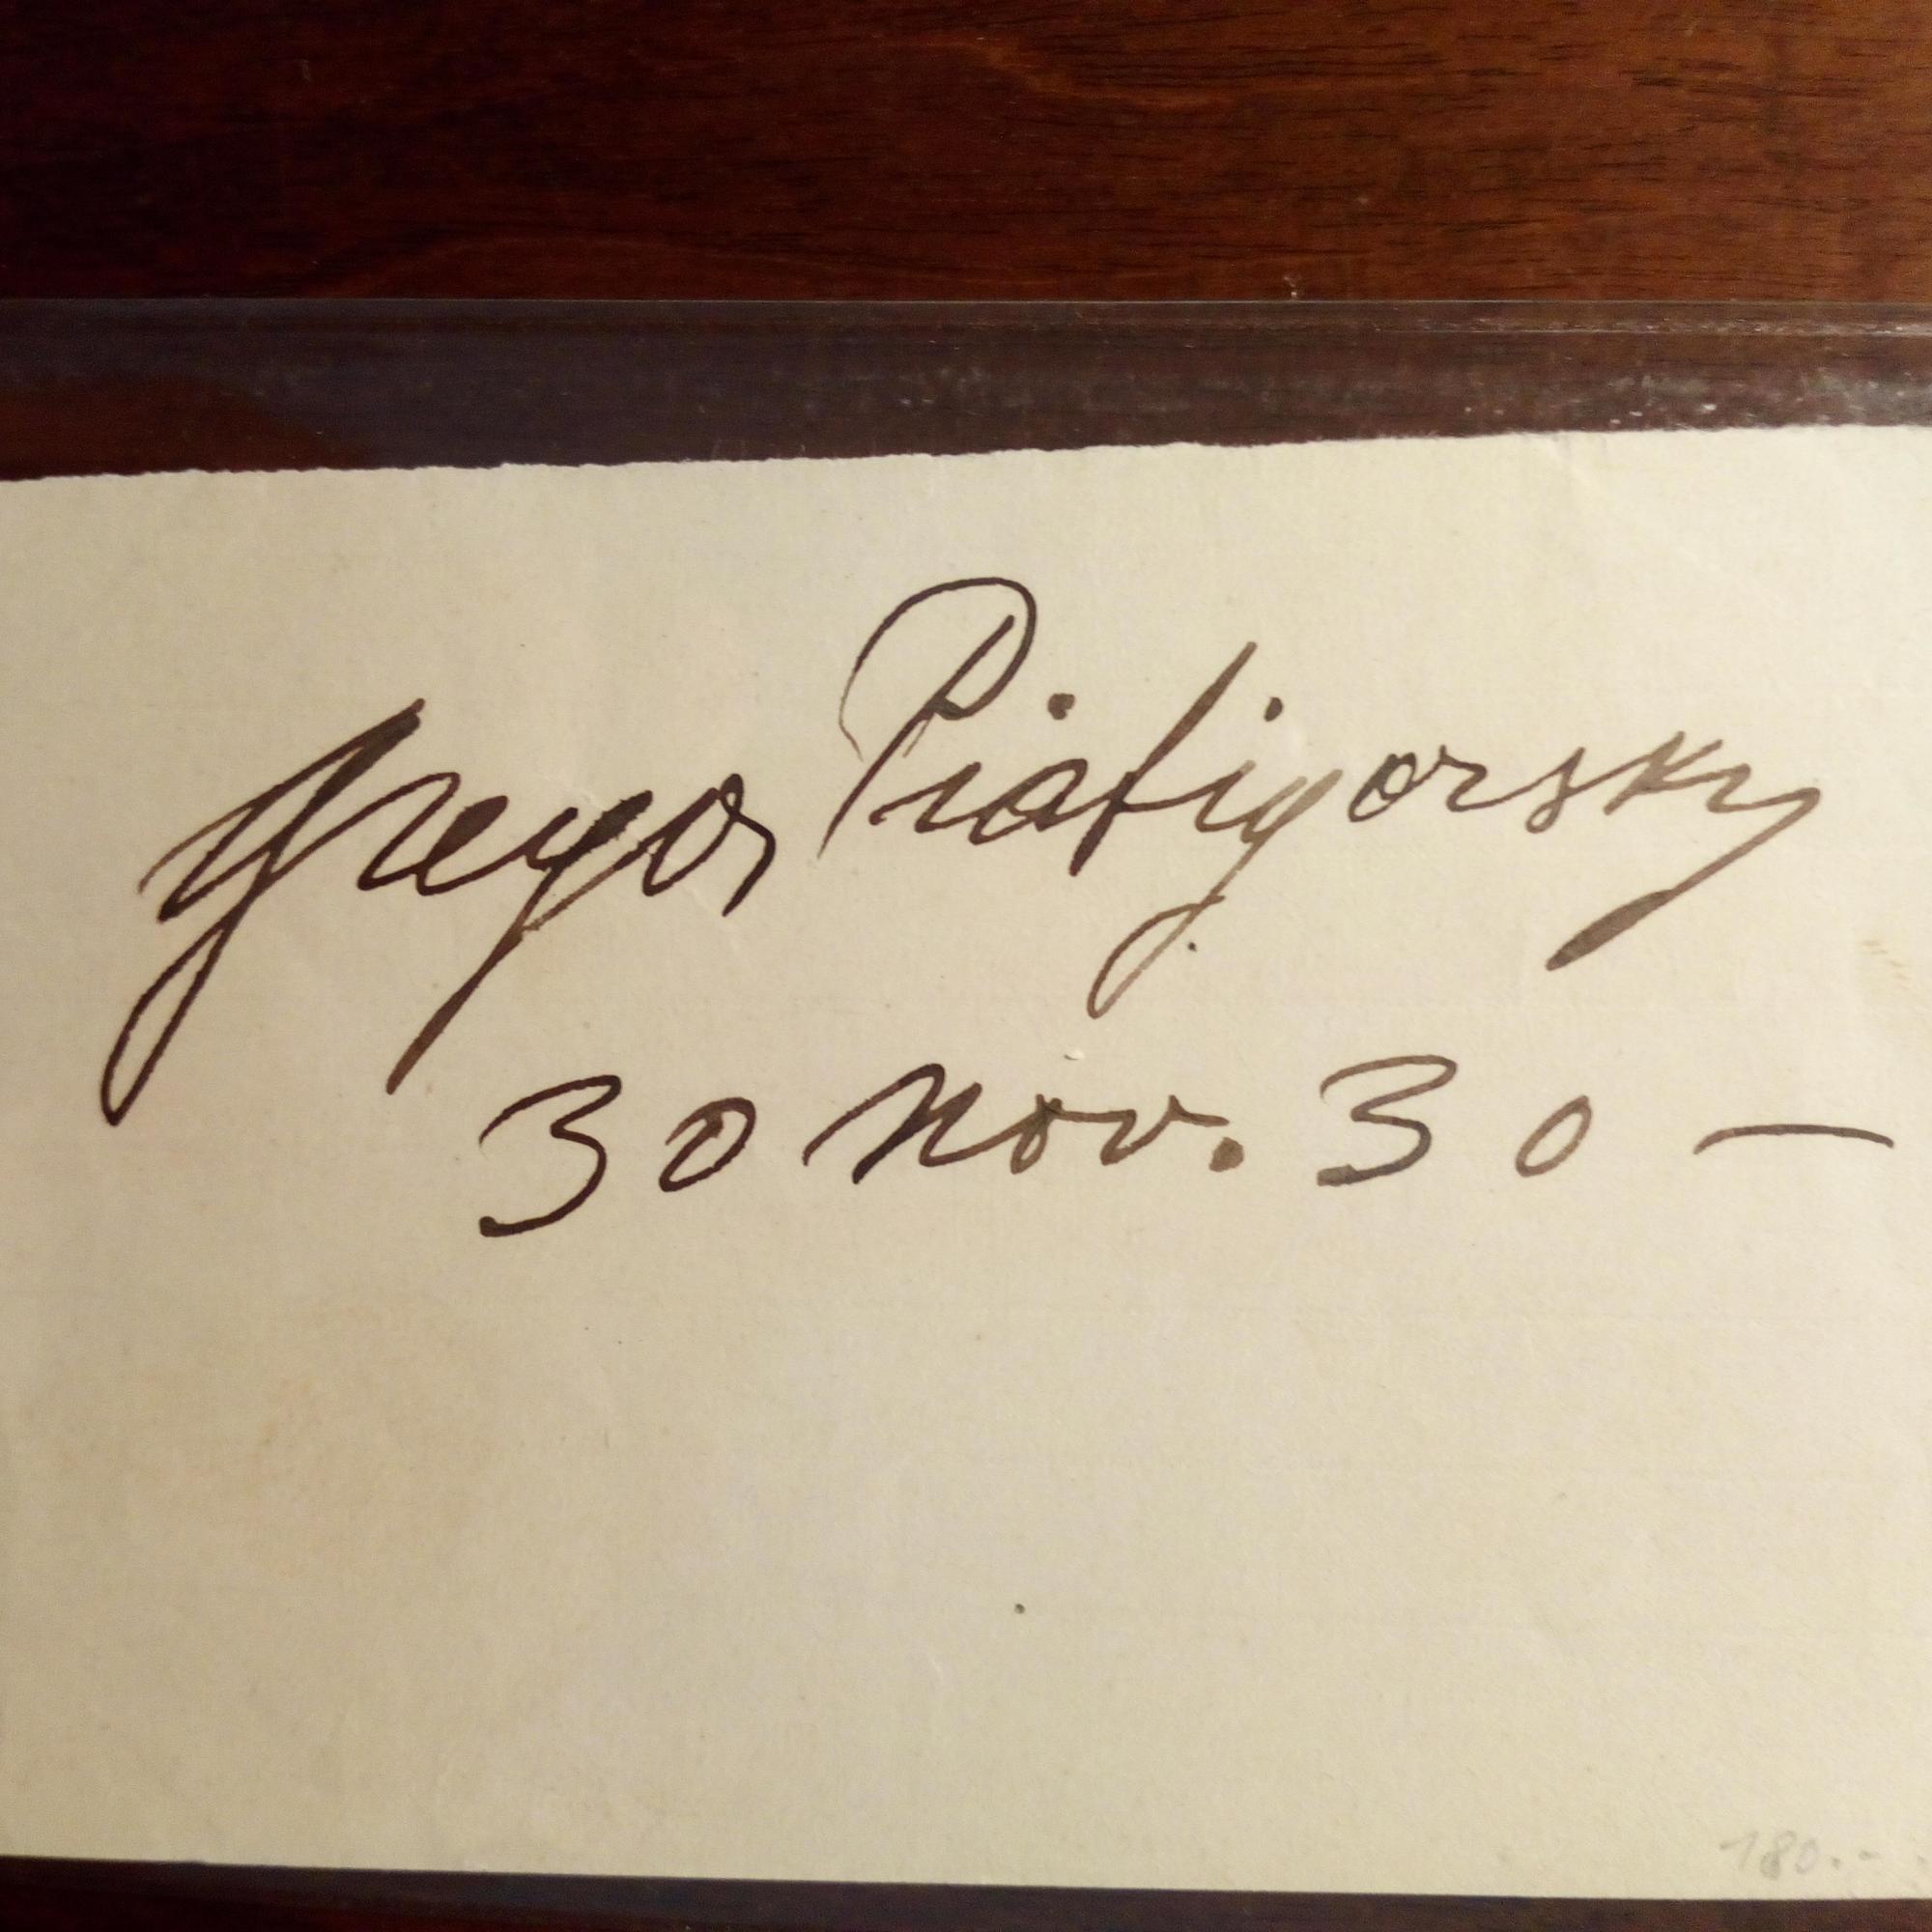 Gregor Piatigorsky
30 Nov. 30 —
180.-